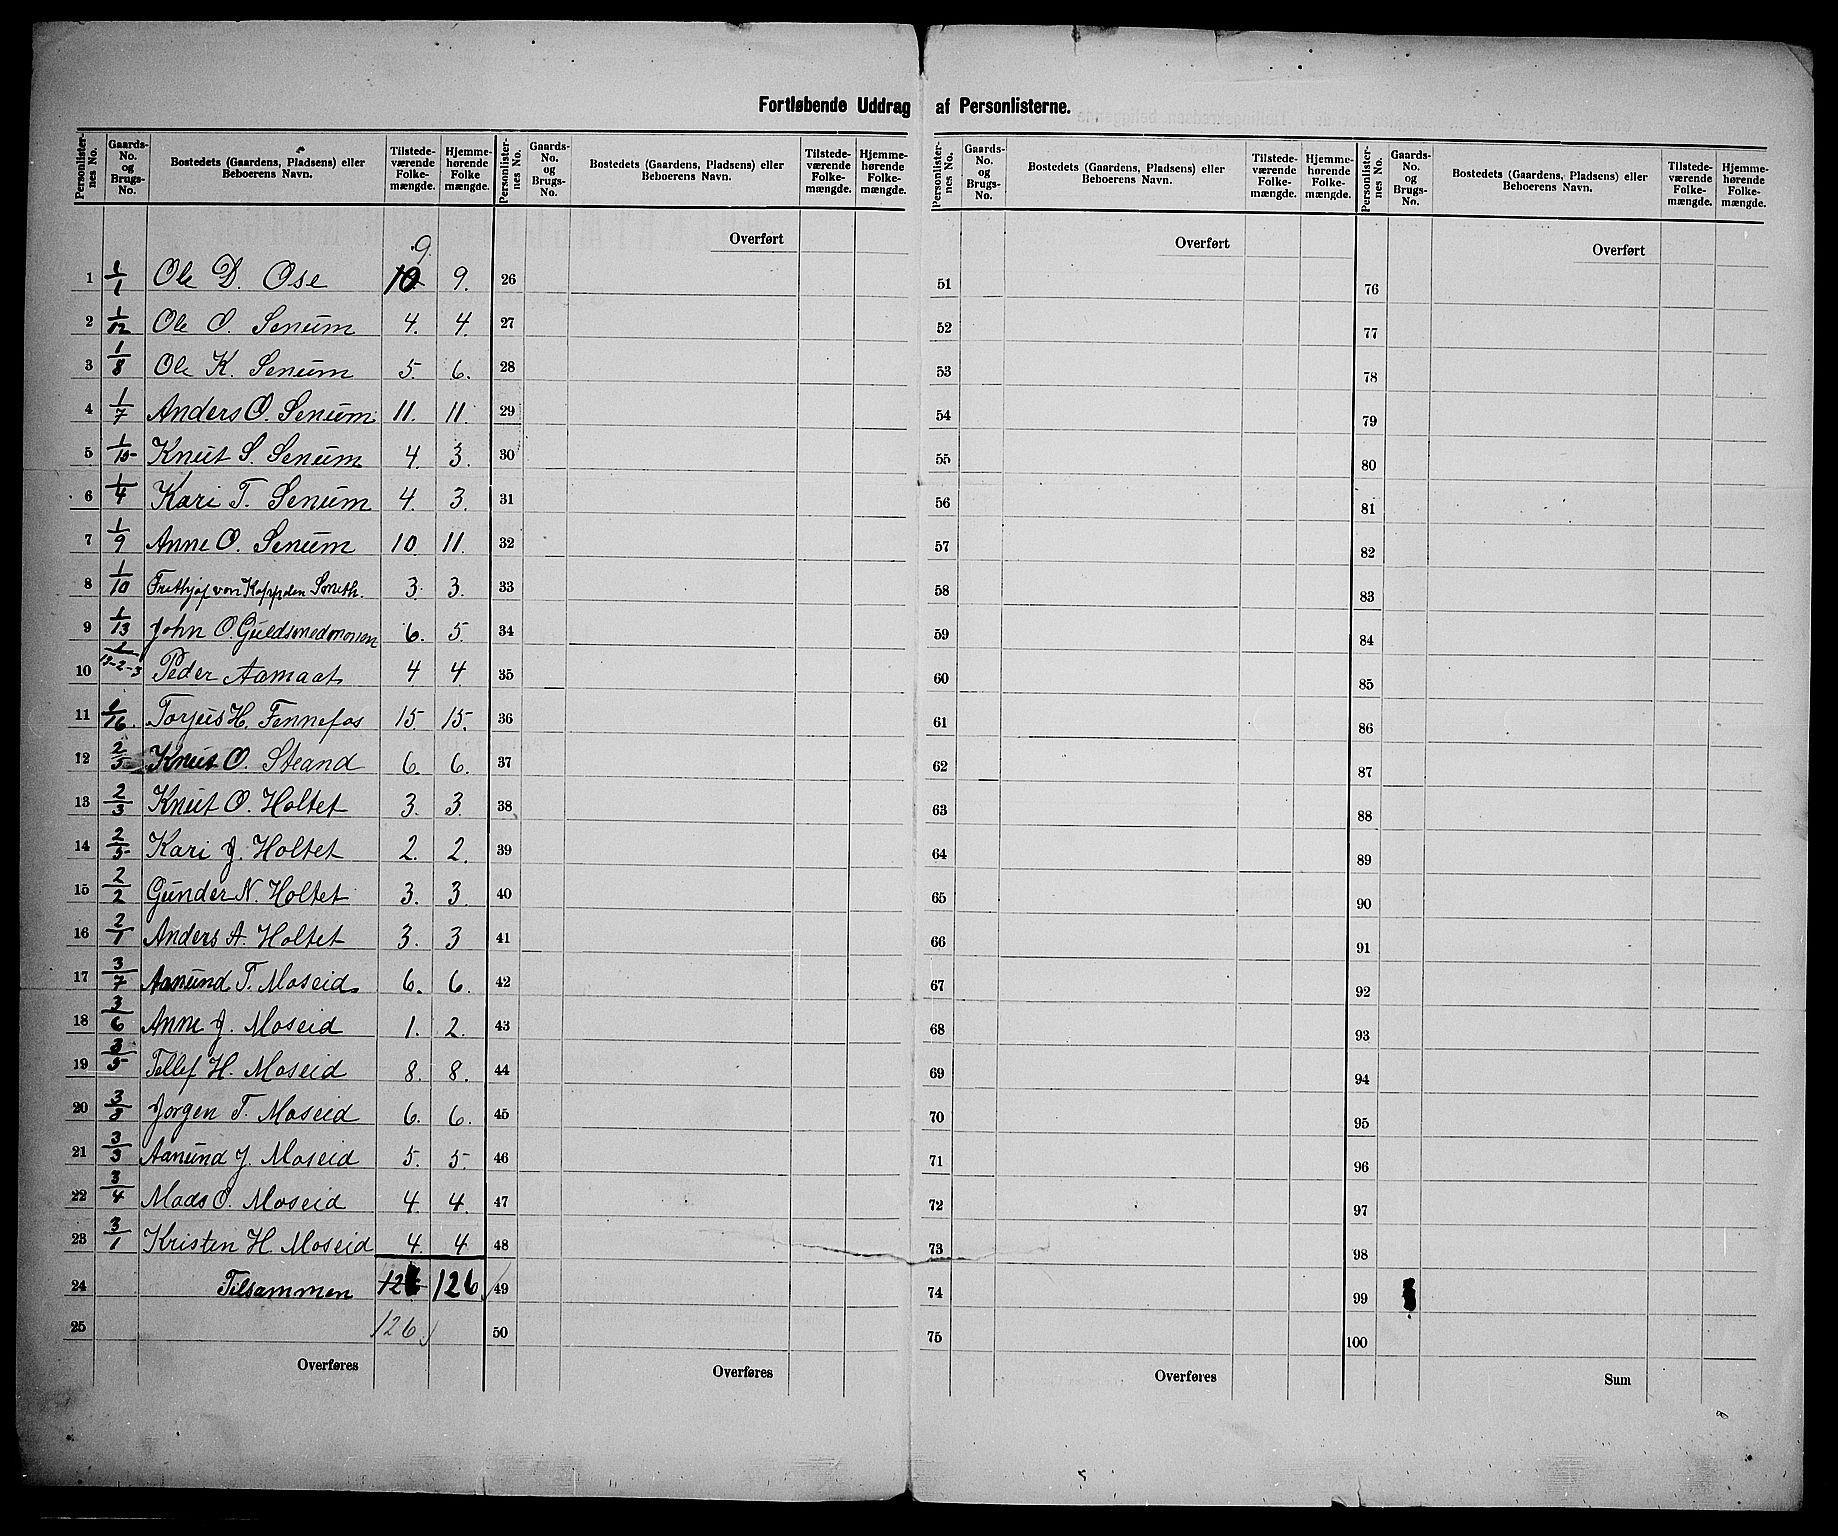 Fortløbende Uddrag af Personlisterne.
Personlister-nes No. | Gaards-No. og Brugs-No. | Bostedets (Gaardens, Pladsens) eller Beboerens Navn. | Tilstede-værende Folke-mængde. | Hjemme-hørende Folke mængde.
9.
1 | 1/1 | Ole D. Ose | 10 | 9.
2 | 1/12 | Ole O. Senum | 4. | 4.
3 | 1/8 | Ole K. Senum | 5. | 6.
4 | 1/7 | Anders O. Senum | 11. | 11.
5 | 1/15 | Knut S. Senum | 4. | 3.
6 | 1/4 | Kari T. Senum | 4. | 3.
7 | 1/9 | Anne O. Senum | 10. | 11.
8 | 1/10 | Frithjof von Kappden Smith. | 3. | 3.
9 | 1/13 | John O. Guldsmedmoen | 6. | 5.
10 | Peder Aamaat | 4 | 4
11 | 1/16. | Torjus H. Fennefos | 15. | 15.
12 | 2/5 | Knut O. Strand | 6. | 6.
13 | 2/3 | Knut O. Holtet | 3. | 3.
14 | 2/5 | Kari J. Holtet | 2. | 2.
15 | 2/2 | Gunder N. Holtet | 3. | 3.
16 | 2/1 | Anders A. Holtet | 3. | 3
17 | 3/7 | Aanund T. Moseid | 6. | 6.
18 | 3/6 | Anne J. Moseid | 1. | 2.
19 | 3/5 | Tellef H. Moseid | 8. | 8.
20 | 3/8 | Jorgen T. Moseid | 6. | 6.
21 | 3/3 | Aanund J. Moseid | 5. | 5.
22 | 3/4 | Mads O. Moseid | 4. | 4.
23 | 3/1 | Kristen H. Moseid | 4. | 4
24 | Tilsammen | 126
25 | 126
Overføres
Personlister-nes No. | Gaards-No. og Brugs-No. | Bostedets (Gaardens, Pladsens) eller Beboerens Navn. | Tilstede-værende Folke-mængde. | Hjemme-hørende Folke-mængde.
Overført
26
27
28
29
30
31
32
33
34
35
36
37
38
39
40
41
42
43
44
45
46
47
48
49
50
Overføres
Personlister-nes No. | Gaards-No. og Brugs-No. | Bostedets (Gaardens, Pladsens) eller Beboerens Navn. | Tilstede-værende Folke-mængde. | Hjemme-hørende Folke-mængde.
Overført
51
52
53
54
55
56
57
58
59
60
61
62
63
64
65
66
67
68
69
70
71
72
73
74
75
Overføres
Personlister-nes No. | Gaards-No. og Brugs-No. | Bostedets (Gaardens, Pladsens) eller Beboerens Navn. | Tilstede-værende Folke-mængde. | Hjemme-hørende Folke-mængde.
Overført
76
77
78
79
80
81
82
83
84
85
86
87
88
89
90
91
92
93
94
95
96
97
98
99
100
Sum